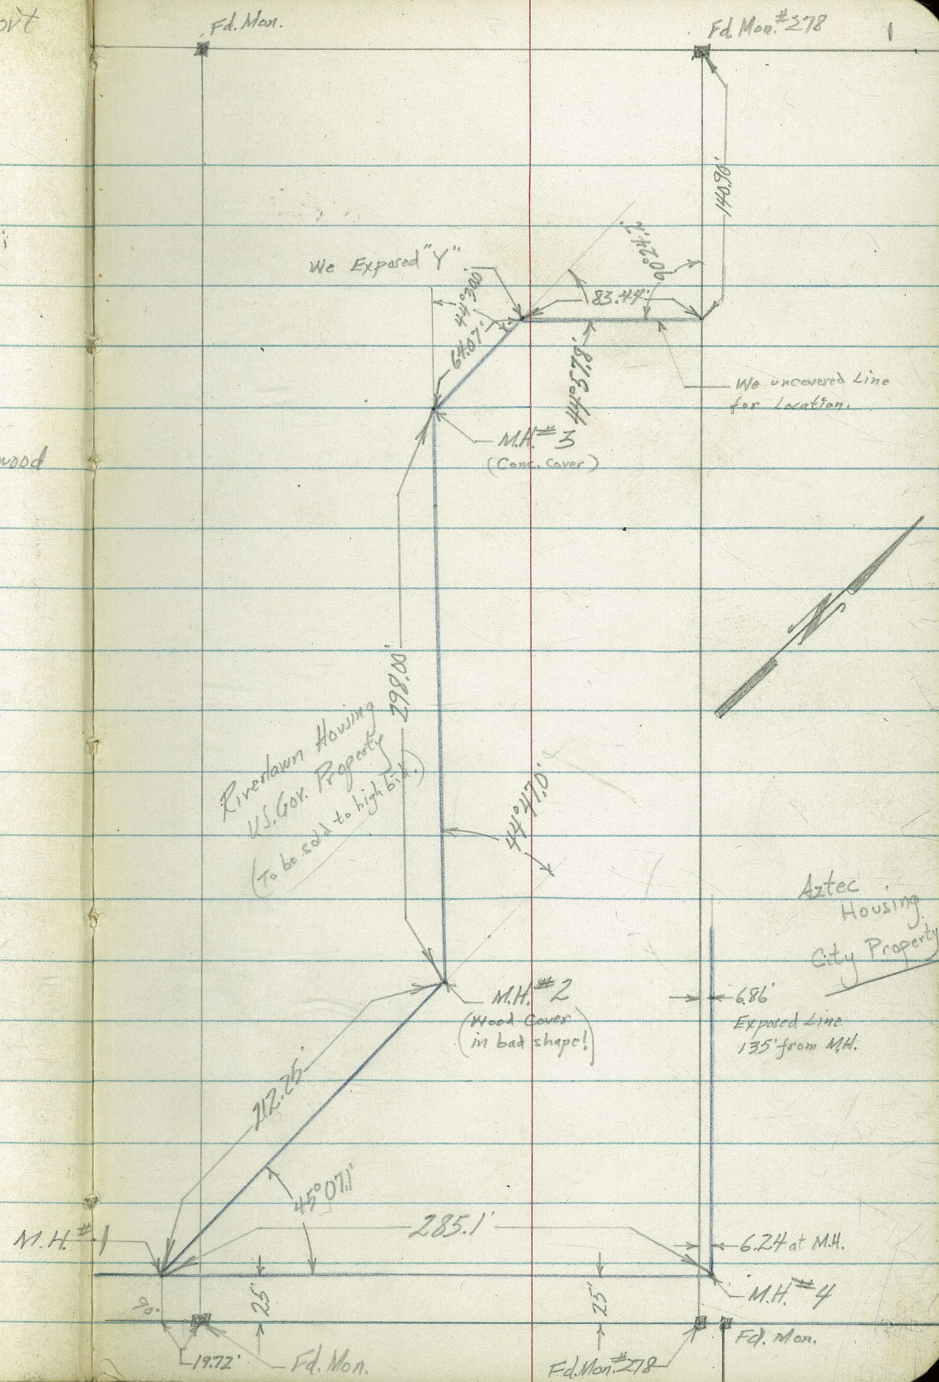 Fd. Mon.
Fd. Mon. #278
1
140.96'
We Exposed "Y"
44°30.0'
64.07'
90°24.2'
83.44'
44°57.8'
We uncovered Line
for Location.
M.H. #3
(Conc. Cover)
wood
298.00'
Riverlawn Housing
U.S. Gov. Property
(To be sold to high bid.)
44°47.0'
N
Aztec
Housing
City Property
M.H. #2
(Wood Cover
in bad shape!)
6.86'
Exposed Line
135' from M.H.
212.25'
45°07.1'
285.1'
M.H. #1
6.24 at M.H.
M.H. #4
90°
25'
25'
19.72'
Fd. Mon.
Fd. Mon. #278
Fd. Mon.